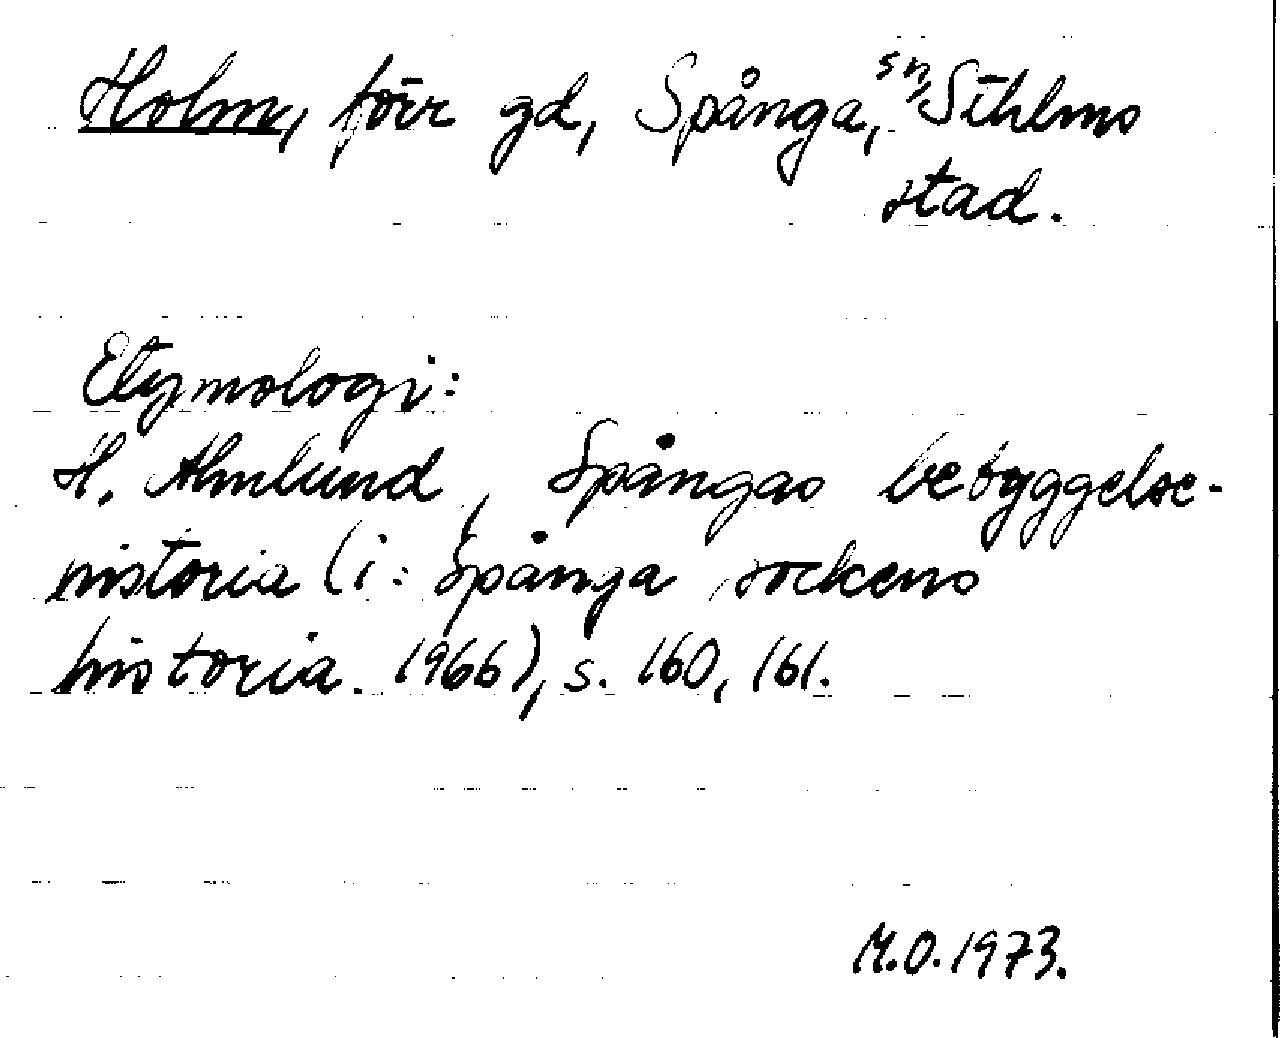 Holm, förr gd, Spånga, sn, Sthlms
stad.
Etymologi:
H. Almlund, Spångas bebyggelse-
historia (i: Spånga sockens
historia. 1966), s. 160, 161.
M.O. 1973.